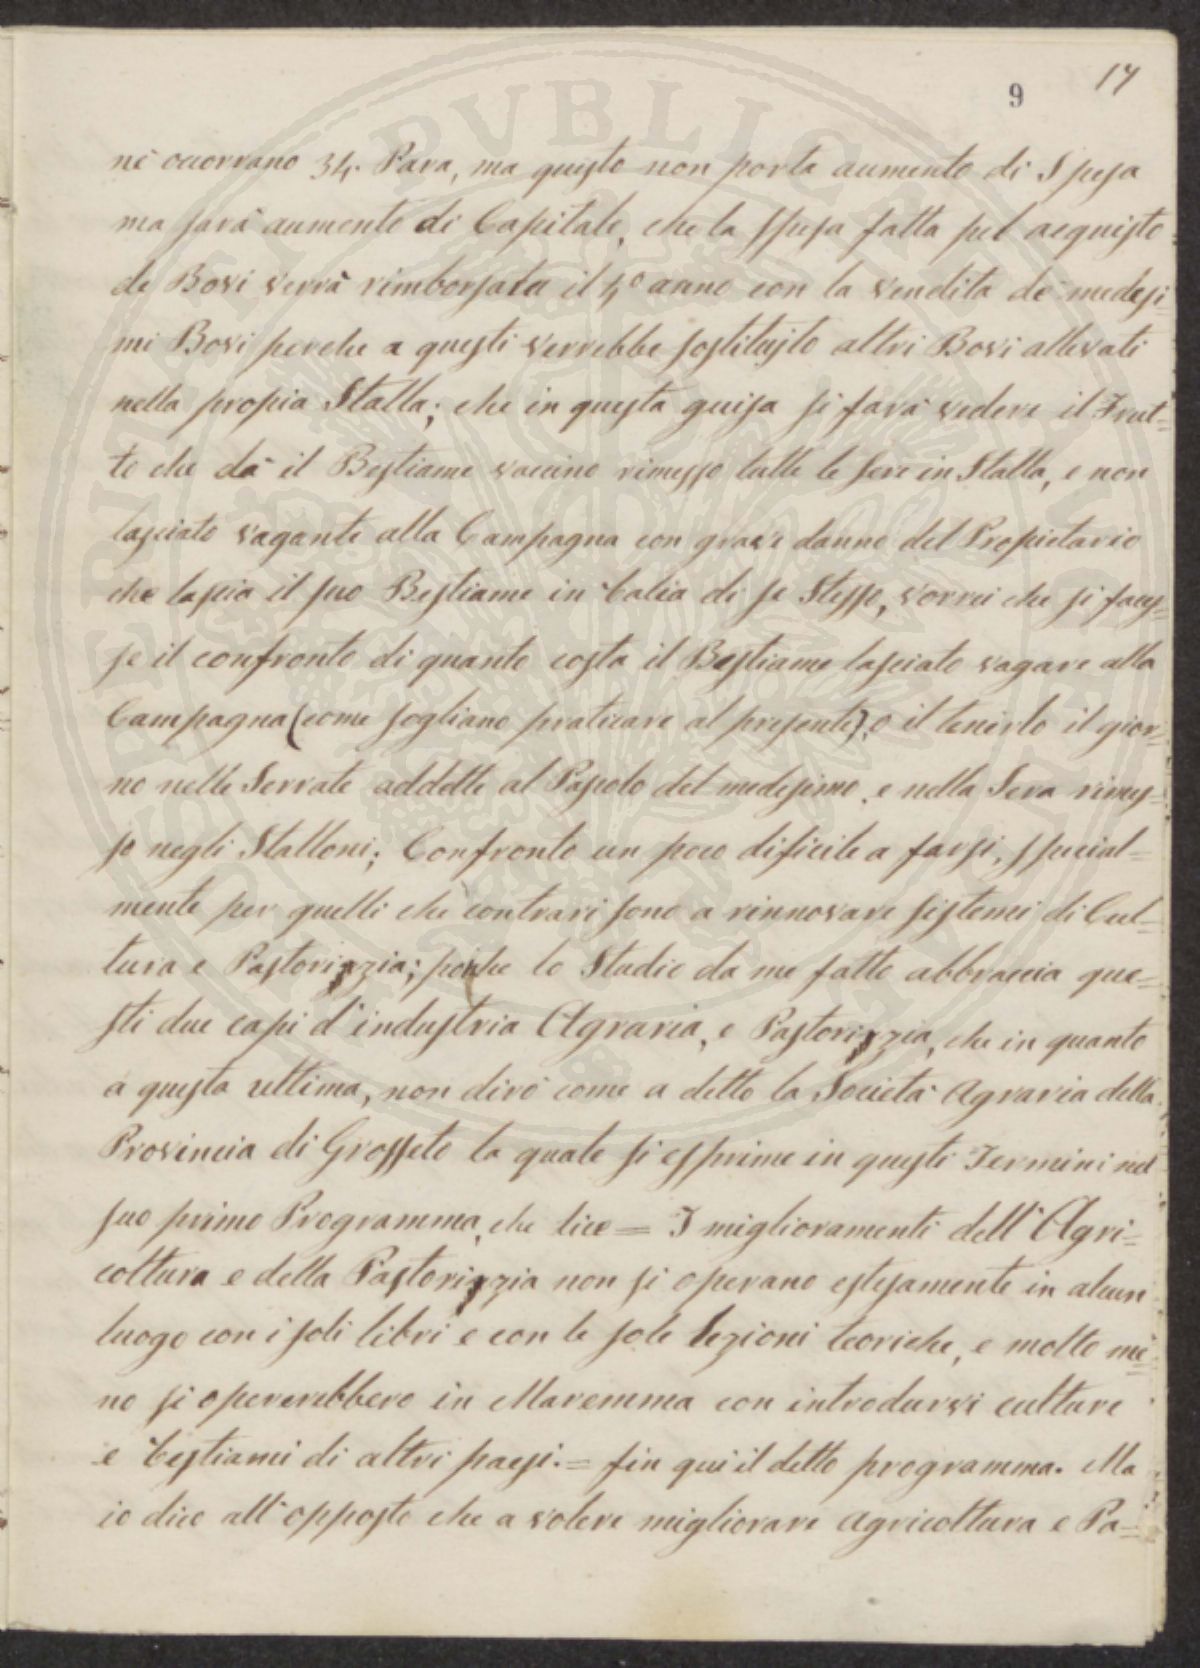 17
9
nè occorrano 34. Para, ma questo non porta aumento di Spesa
ma sarà aumento di Capitale, che la spesa fatta pel acquisto
de Bovi verrà rimborsata il 4º anno con la vendita de medesi=
mi Bovi perche a questi verrebbe sostituito altri Bovi allevati
nella propia Stalla; che in questa guisa si farà vedere il Frut=
to che dà il Bestiame vaccino rimesso tutte le sere in Stalla, e non
lasciato vagante alla Campagna con grave danno del Propietario
che lascia il suo Bestiame in balia di se Stesso, vorrei che si faces=
se il confronto di quanto costa il Bestiame lasciato vagare alla
Campagna (come sogliano praticare al presente), o il tenerlo il gior=
no nelle Serrate addette al Pascolo del medesimo, e nella Sera rimes=
so negli Stalloni; Confronto un poco dificile a farsi, special=
mente per quelli che contrari sono a rinnovare sistemi di Cul=
tura e Pastorizzia; poiche lo Studio da me fatto abbraccia que=
sti due capi d'industria Agraria, e Pastorizzia, che in quanto
a questa ultima, non dirò come a detto la Società Agraria della
Provincia di Grosseto la quale si esprime in questi Termini nel
suo primo Programma, che dice = I miglioramenti dell'Agri=
coltura e della Pastorizzia non si operano estesamente in alcun
luogo con i soli libri e con le sole Lezioni teoriche, e molto me=
no si opererebbero in Maremma con introdurvi culture
e bestiami di altri paesi. = fin qui il detto programma. Ma
io dico all'opposto che a volere migliorare agricoltura e Pa=